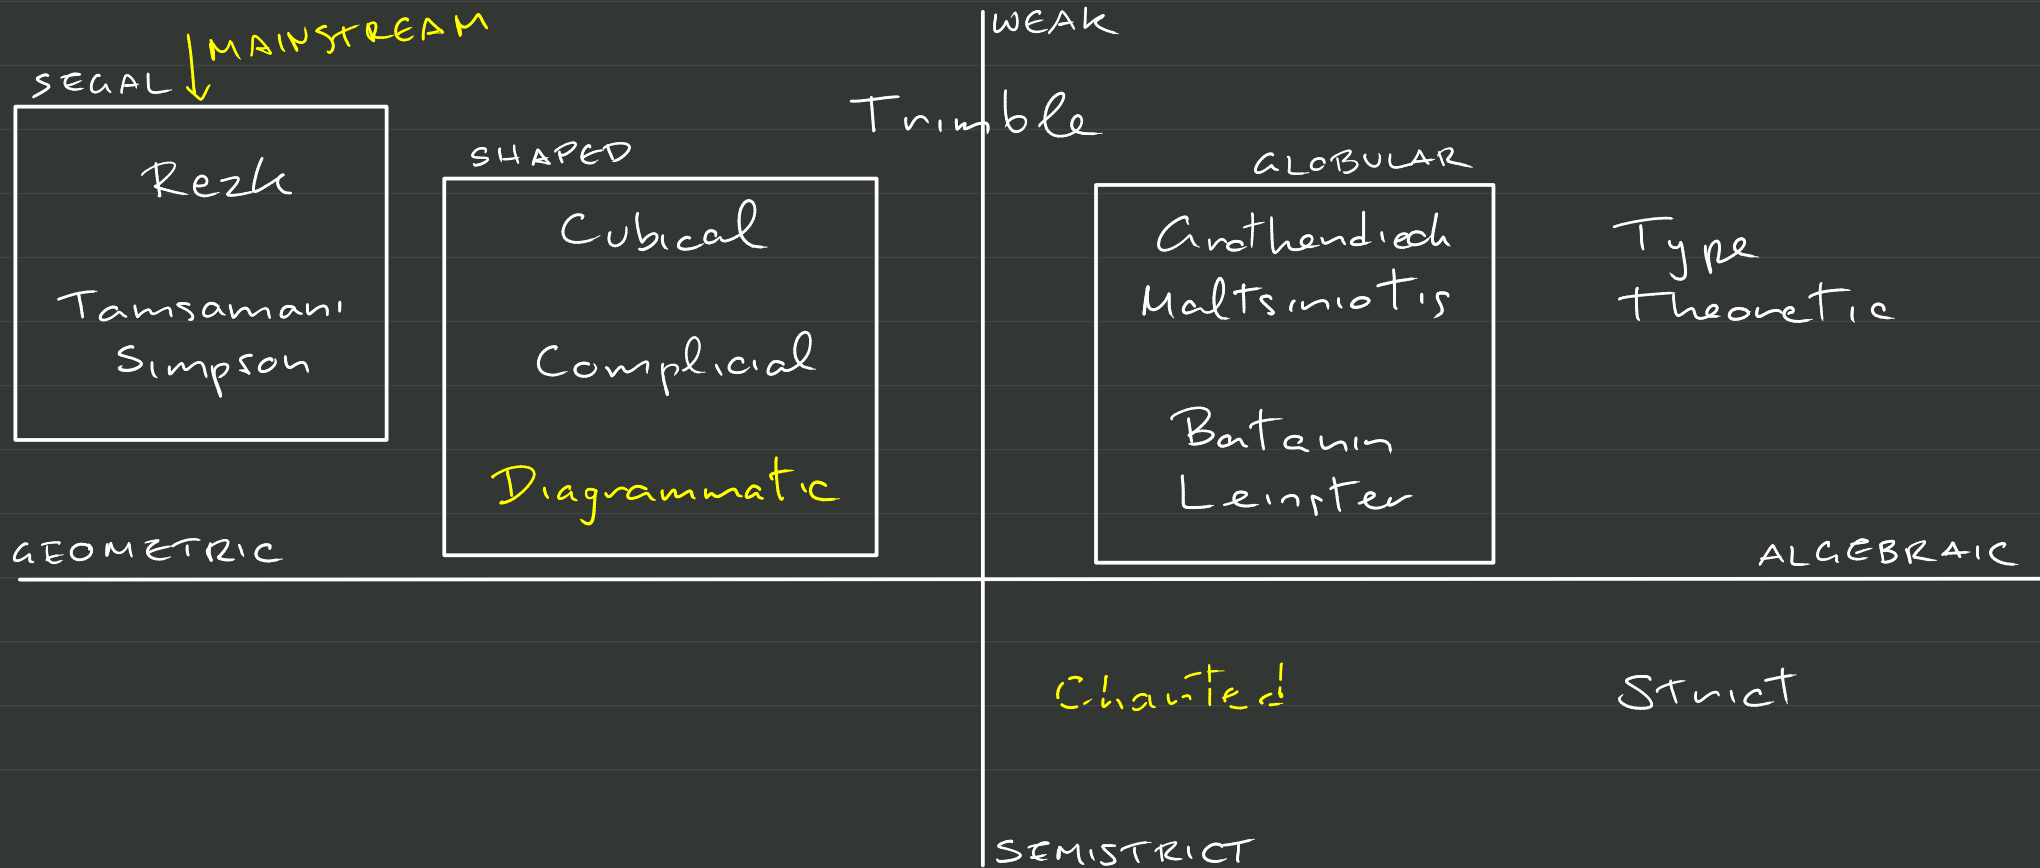 WEAK
MAINSTREAM
SEGAL
Rezk
Tamsamani
Simpson
Trimble
SHAPED
Cubical
Complicial
Diagrammatic
GLOBULAR
Grothendieck
Maltsiniotis
Batanin
Leinster
Type
Theoretic
GEOMETRIC
ALGEBRAIC
Charted
Strict
SEMISTRICT